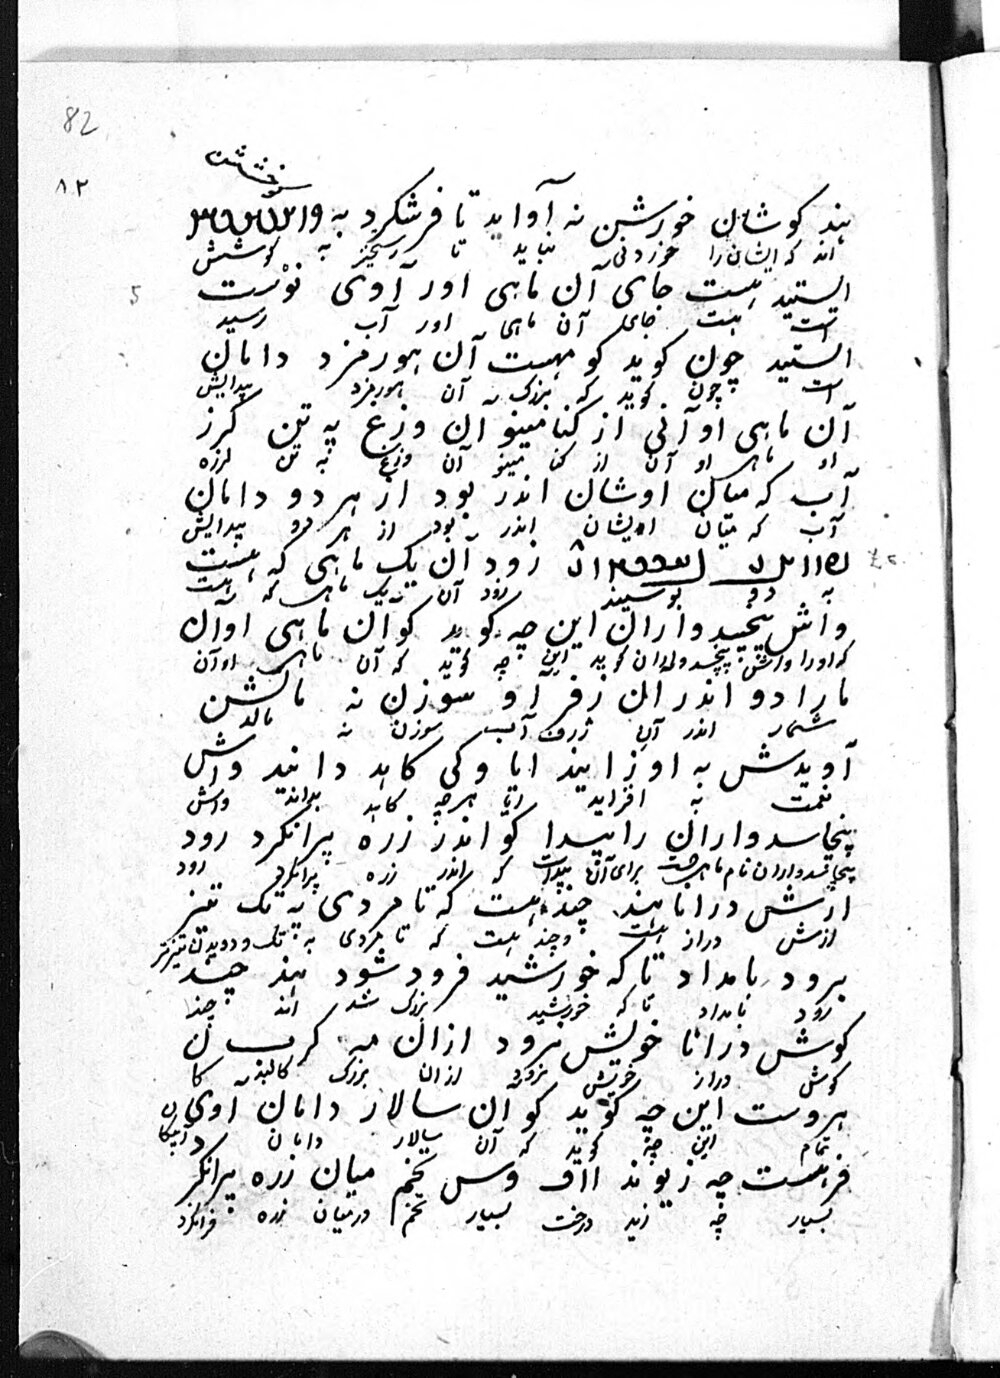 82
۸۲
هند کوشان خورشن نه آواید تا فرشکرد به
اند که ایشان را خوردنی نباید تا رسخیز به کوشش
5
ایستید هست جای آن ماهی اور آوی
است هست جای آن ماهی اور آب رسید
ایستید چون کوید کو مهست آن هورمزد دامان
است چون کوید که بزرگ آن هورمزد پیدایش
آن ماهی او آنی از کنامینو ان وزغ په تن کرز
او ماهی او آن از کنا مینو آن وزغ به تن لرزه
آب که میان اوشان اندر بود از هر دو دامان
آب که میان ایشان اندر بود از هر دو پیدایش
زود آن یک ماهی که هست
به دو زود آن یک ماهی که هست
واش پنچسدواران این چه کوید کوان ماهی اوآن
که اورا واش پنچسدواران کوید این چه کوید که آن ماهی اوآن
مارا دو اندر ان زفر آو سوزن نه مالشن
شمار اندر آن ژرف آب سوزن نه مالد
آویدش به اوزایند ایا وکی کاهد دانید واش
نعمت به افزاید ایا هرچه کاهد بداند واش
پنچاسدواران را پیدا کو اندر زره پرانکرد رود
پنچاسدواران نام ماهی است برای آن پیداست که اندر زره پرانکرد رود
ازش درانا هند چند هست که تا مردی په تک تیز
ازش دراز است و چند هست که تا مردی به تک و دویدن تیزتر
برود بامداد تا که خورشید فرود شود هند چند
رود بامداد تا که خورشید بزرگ شد اند چند
کوش درانا خویش نرود ازان مه کرپ ن
کوش دراز خویش نرود ازان بزرگ کالبد کا
هروست این چه کوید کو آن سالار دامان اوی
تمام این چه کوید که آن سالار دامان آبیکان
فرهست چه زیوند وس تخم میان زره پرانکرد
بسیار چه زید درخت بسیار تخم درمیان زره فرانکرد